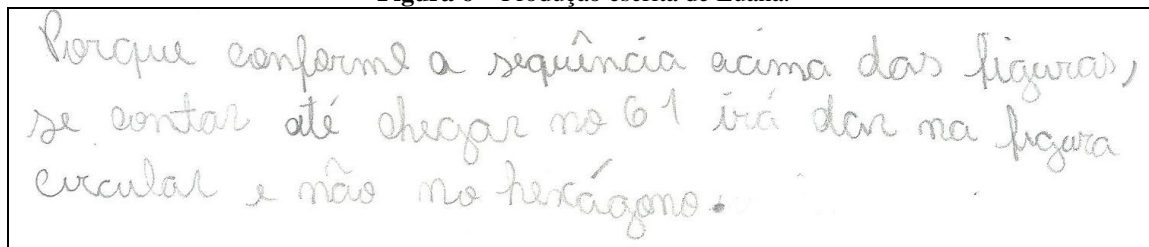 Porque conforme a sequência acima das figuras,
se contar até chegar no 61 irá dar na figura
circular e não no hexágono.